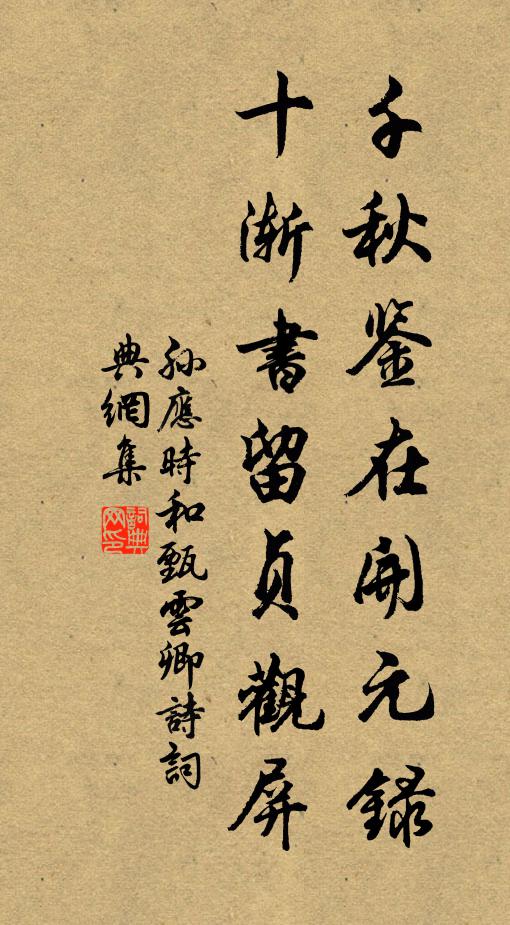 千秋鉴在開元録
十漸書留貞觀屏
孫應時和甄雲卿詩詞
典網集
詞典網印